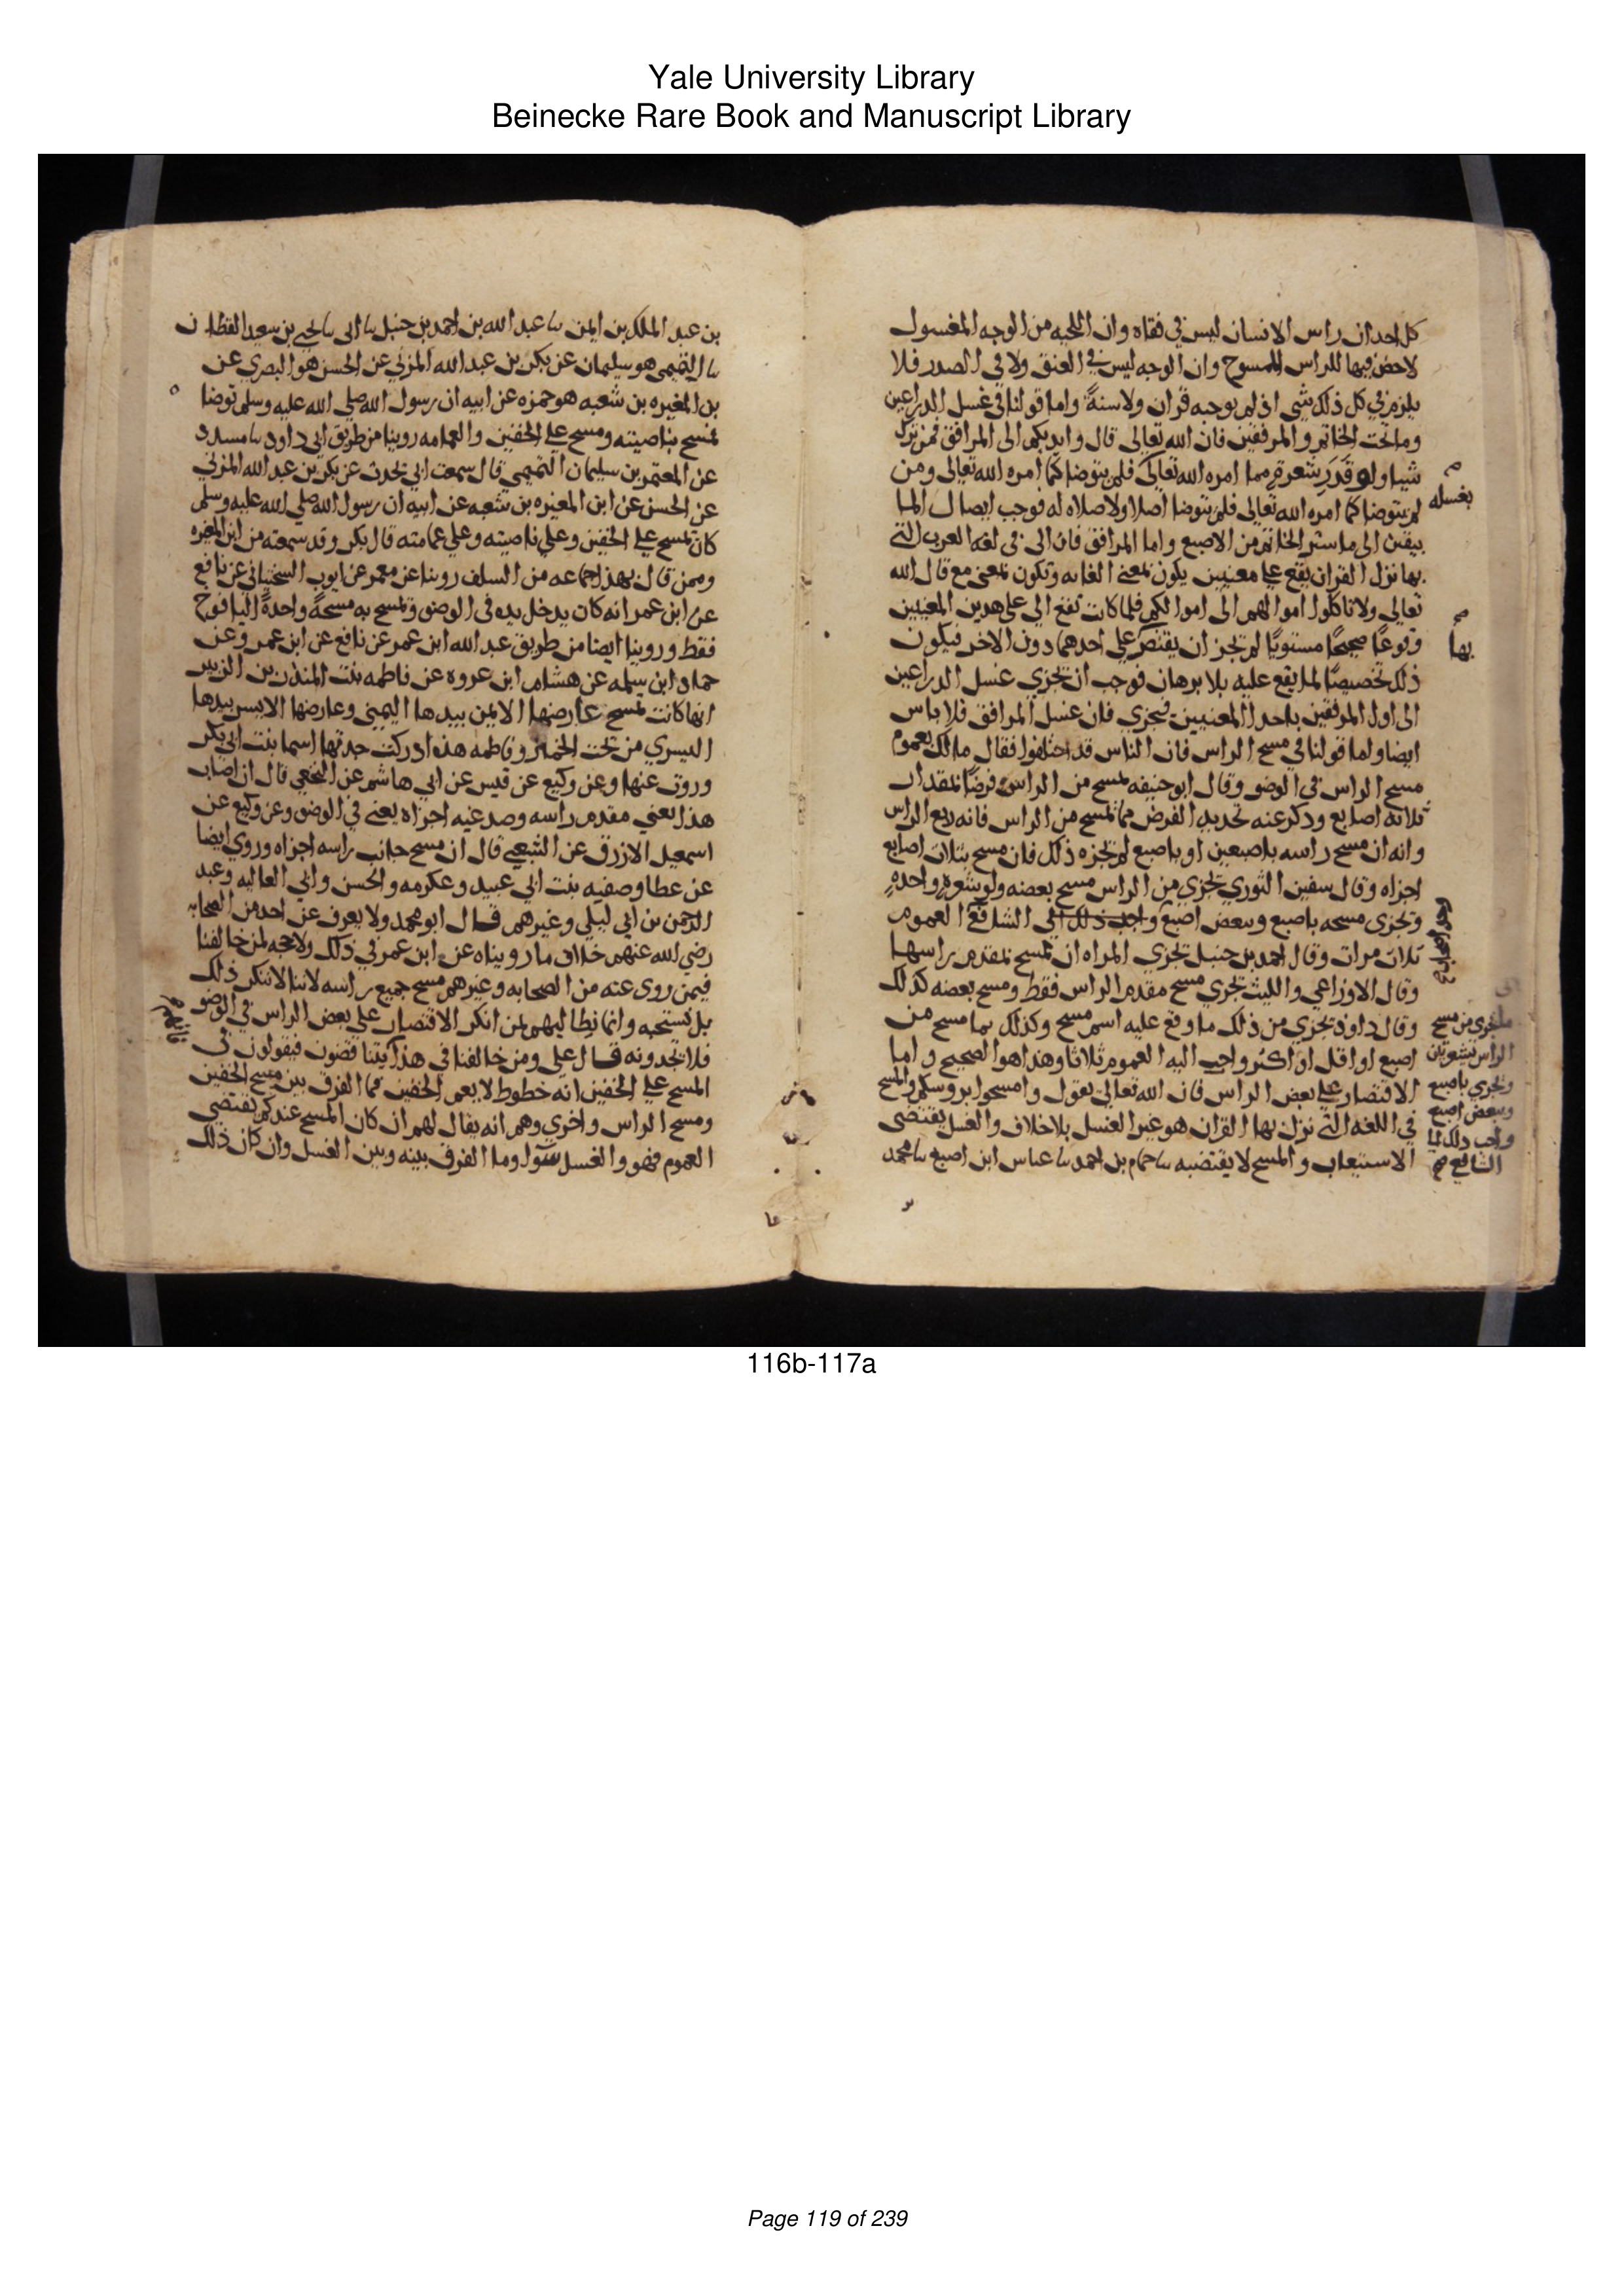 Yale University Library
Beinecke Rare Book and Manuscript Library
كل احد ان راس الانسان ليس في قفاه وان اللحيه من الوجه المغسول
لاحض فيها للراس الممسوح وان الوجه ليس في العنق ولا في الصدر فلا
يلزم في كل ذلك شي اذ لم يوجبه قران ولا سنة واما قولنا في غسل الدراعين
وماتحت الخاتم والمرفقين فان الله تعالى قال وايديكم الى المرافق فمن ترك
شيا ولو قدر شعرة مما امره الله تعالى فلم يتوضا كما امره الله تعالى ومن
بغسله
لم يتوضا كما امره الله تعالى فلم يتوضا اصلا ولا صلاه له فوجب ايصال الما
بيقين الى ماستر الخاتم من الاصبع واما المرافق فان الى في لغه العرب التي
بها نزل القران يقع على معنيين يكون بمعنى الغايه وتكون بمعنى مع قال الله
تعالى ولا تاكلوا اموالهم الى اموالكم فلما كانت تقع الى على هدين المعنيين
بها
وقوعا صحيحا مستويا لم تجز ان يقتصر على احدهما دون الاخر فيكون
ذلك تخصيصا لما يقع عليه بلا برهان فوجب ان تجزي غسل الدراعين
الى اول المرفقين باحد المعنيين فيجزي فان غسل المرافق فلا باس
ايضا واما قولنا في مسح الراس فان الناس قد اختلفوا فقال مالك بعموم
مسح الراس في الوضو وقال ابو حنيفه يمسح من الراس فرضا بمقدار
ثلاثه اصابع ودكر عنه تحديد الفرض مما يمسح من الراس فانه ربع الراس
وانه ان مسح راسه باصبعين او باصبع لم يجزه ذلك فان مسح بثلاث اصابع
اجزاه وقال سفين الثوري يجزي من الراس مسح بعضه ولو شعره واحده
وتجزى مسحه باصبع وببعض اصبع واحب ذلك الى الشافعي العموم
ثلاث مرات وقال احمد بن حنبل تجزي المراه ان تمسح بمقدم راسها
وقال الاوزاعي والليث يجزي مسح مقدم الراس فقط ومسح بعضه كذلك
وقال داود تجزي من ذلك ما وقع عليه اسم مسح وكذلك بما مسح من
اصبع او اقل او اكثر واحب اليه العموم ثلاثا وهذا هو الصحيح واما
الاقتصار على بعض الراس فان الله تعالى يقول وامسحوا بروسكم والمسح
في اللغه التي نزل بها القران هو غير الغسل بلا خلاف والغسل يقتضى
الاستيعاب والمسح لا يقتضيه نا حمام بن احمد نا عباس ابن اصبغ نا محمد
ما يجزي من مسح
الراس شعرتان
وتجزي باصبع
وببعض اصبع
واحب ذلك الى
الشافعي
بن عبد الملك بن ايمن نا عبد الله بن احمد بن حنبل نا ابى نا يحيى بن سعيد القطان
نا التيمى هو سليمان عن بكر بن عبد الله المزني عن الحسن هو البصري عن
بن المغيره بن شعبه هو حمزه عن ابيه ان رسول الله صلى الله عليه وسلم توضا
فمسح بناصيته ومسح على الخفين والعمامه روينا من طريق ابى داود نا مسدد
عن المعتمر بن سليمان التميمي قال سمعت ابي يحدث عن بكر بن عبد الله المزني
عن الحسن عن ابن المغيره بن شعبه عن ابيه ان رسول الله صلى الله عليه وسلم
كان يمسح على الخفين وعلى ناصيته وعلى عمامته قال بكر وقد سمعته من ابن المغيره
وممن قال بهذا جماعه من السلف روينا عن معمر عن ايوب السختياني عن نافع
عن ابن عمر انه كان يدخل يده في الوضو فيمسح به مسحة واحدة اليافوخ
فقط وروينا ايضا من طريق عبد الله ابن عمر عن نافع عن ابن عمر وعن
حماد ابن سلمه عن هشام ابن عروه عن فاطمه بنت المنذر بن الزبير
انها كانت تمسح عارضها الايمن بيدها اليمنى وعارضها الايسر بيدها
اليسري من تحت الخمار وفاطمه هذه ادركت جدتها اسما بنت ابي بكر
وروت عنها وعن وكيع عن قيس عن ابي هاشم عن النخعي قال ان اصاب
هذا يعني مقدم راسه وصدغيه اجزاه يعنى في الوضو وعن وكيع عن
اسمعيل الازرق عن الشعبي قال ان مسح جانب راسه اجزاه وروي ايضا
عن عطا وصفيه بنت ابي عبيد وعكرمه والحسن وابي العاليه وعبد
الرحمن بن ابي ليلى وغيرهم قال ابو محمد ولا يعرف عن احد من الصحابه
رضي الله عنهم خلاف ما رويناه عن ابن عمر في ذلك ولا حجه لمن خالفنا
فيمن روى عنه من الصحابه وغيرهم مسح جميع راسه لاننا لا ننكر ذلك
بل نستحبه وانما نطالبهم بمن انكر الاقتصار على بعض الراس في الوضو
فلا تجدونه قال على ومن خالفنا في هذا يتناقضون فيقولون في
المسح على الخفين انه خطوط لا يعم الخفين فما الفرق بين مسح الخفين
ومسح الراس واخري وهم انه يقال لهم ان كان المسح عندكم يقتضي
العموم فهو والغسل سوا وما الفرق بينه وبين الغسل وان كان ذلك
116b-117a
Page 119 of 239